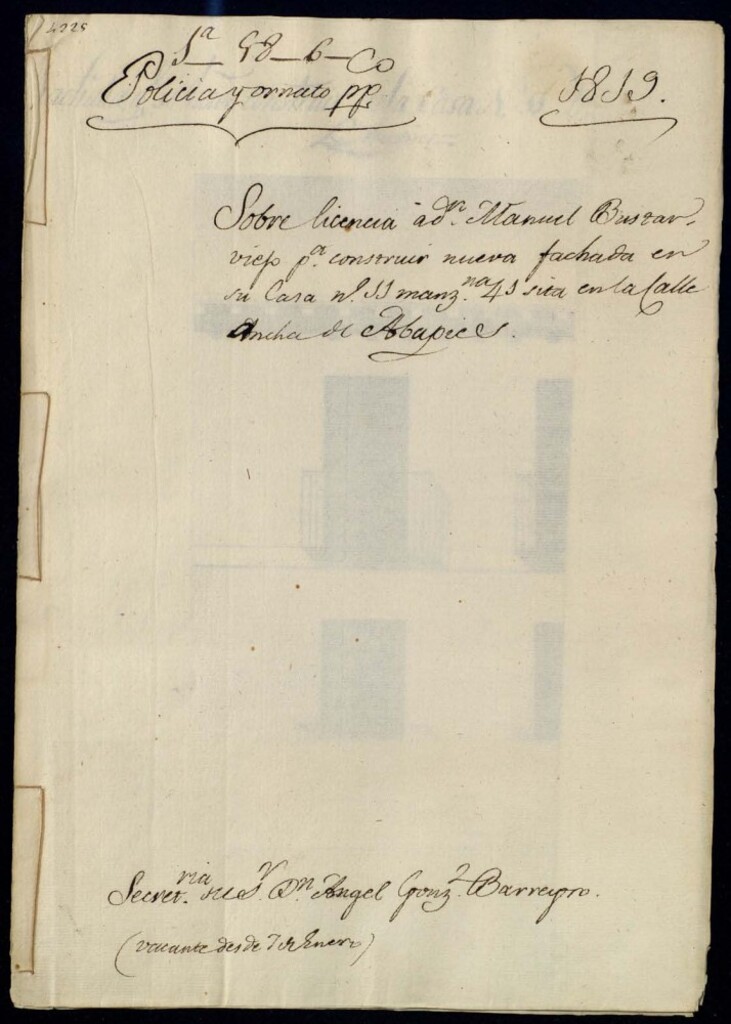 1ª 58-6-Co
Policia y ornato pp.
1819.
Sobre licencia a dn. Manuel Bustar-
viejo pª construir nueva fachada en
su Casa nº 11 manzna. 41 sita en la Calle
Ancha de Abapies.
Secretria. del Sr. Dn. Angel Gonzz. Barreyro.
(vacante desde 7 de Enero)